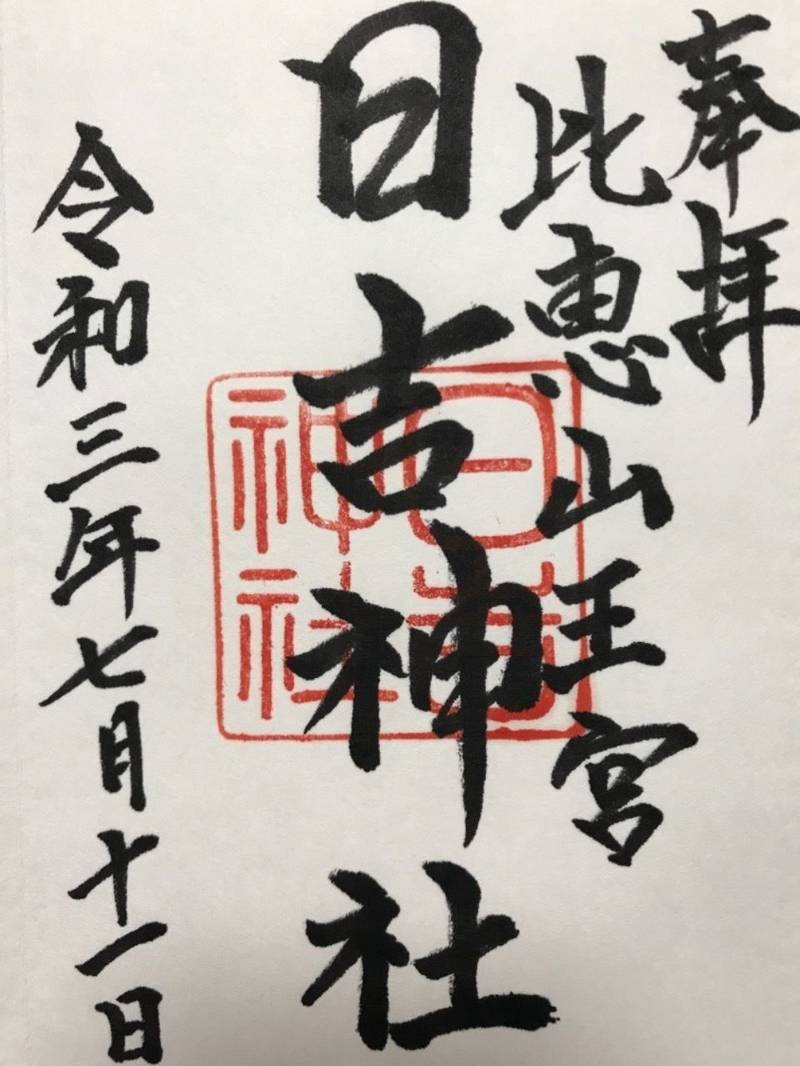 奉拝
比恵山王宮
日吉神社
日吉
神社
令和三年七月十一日